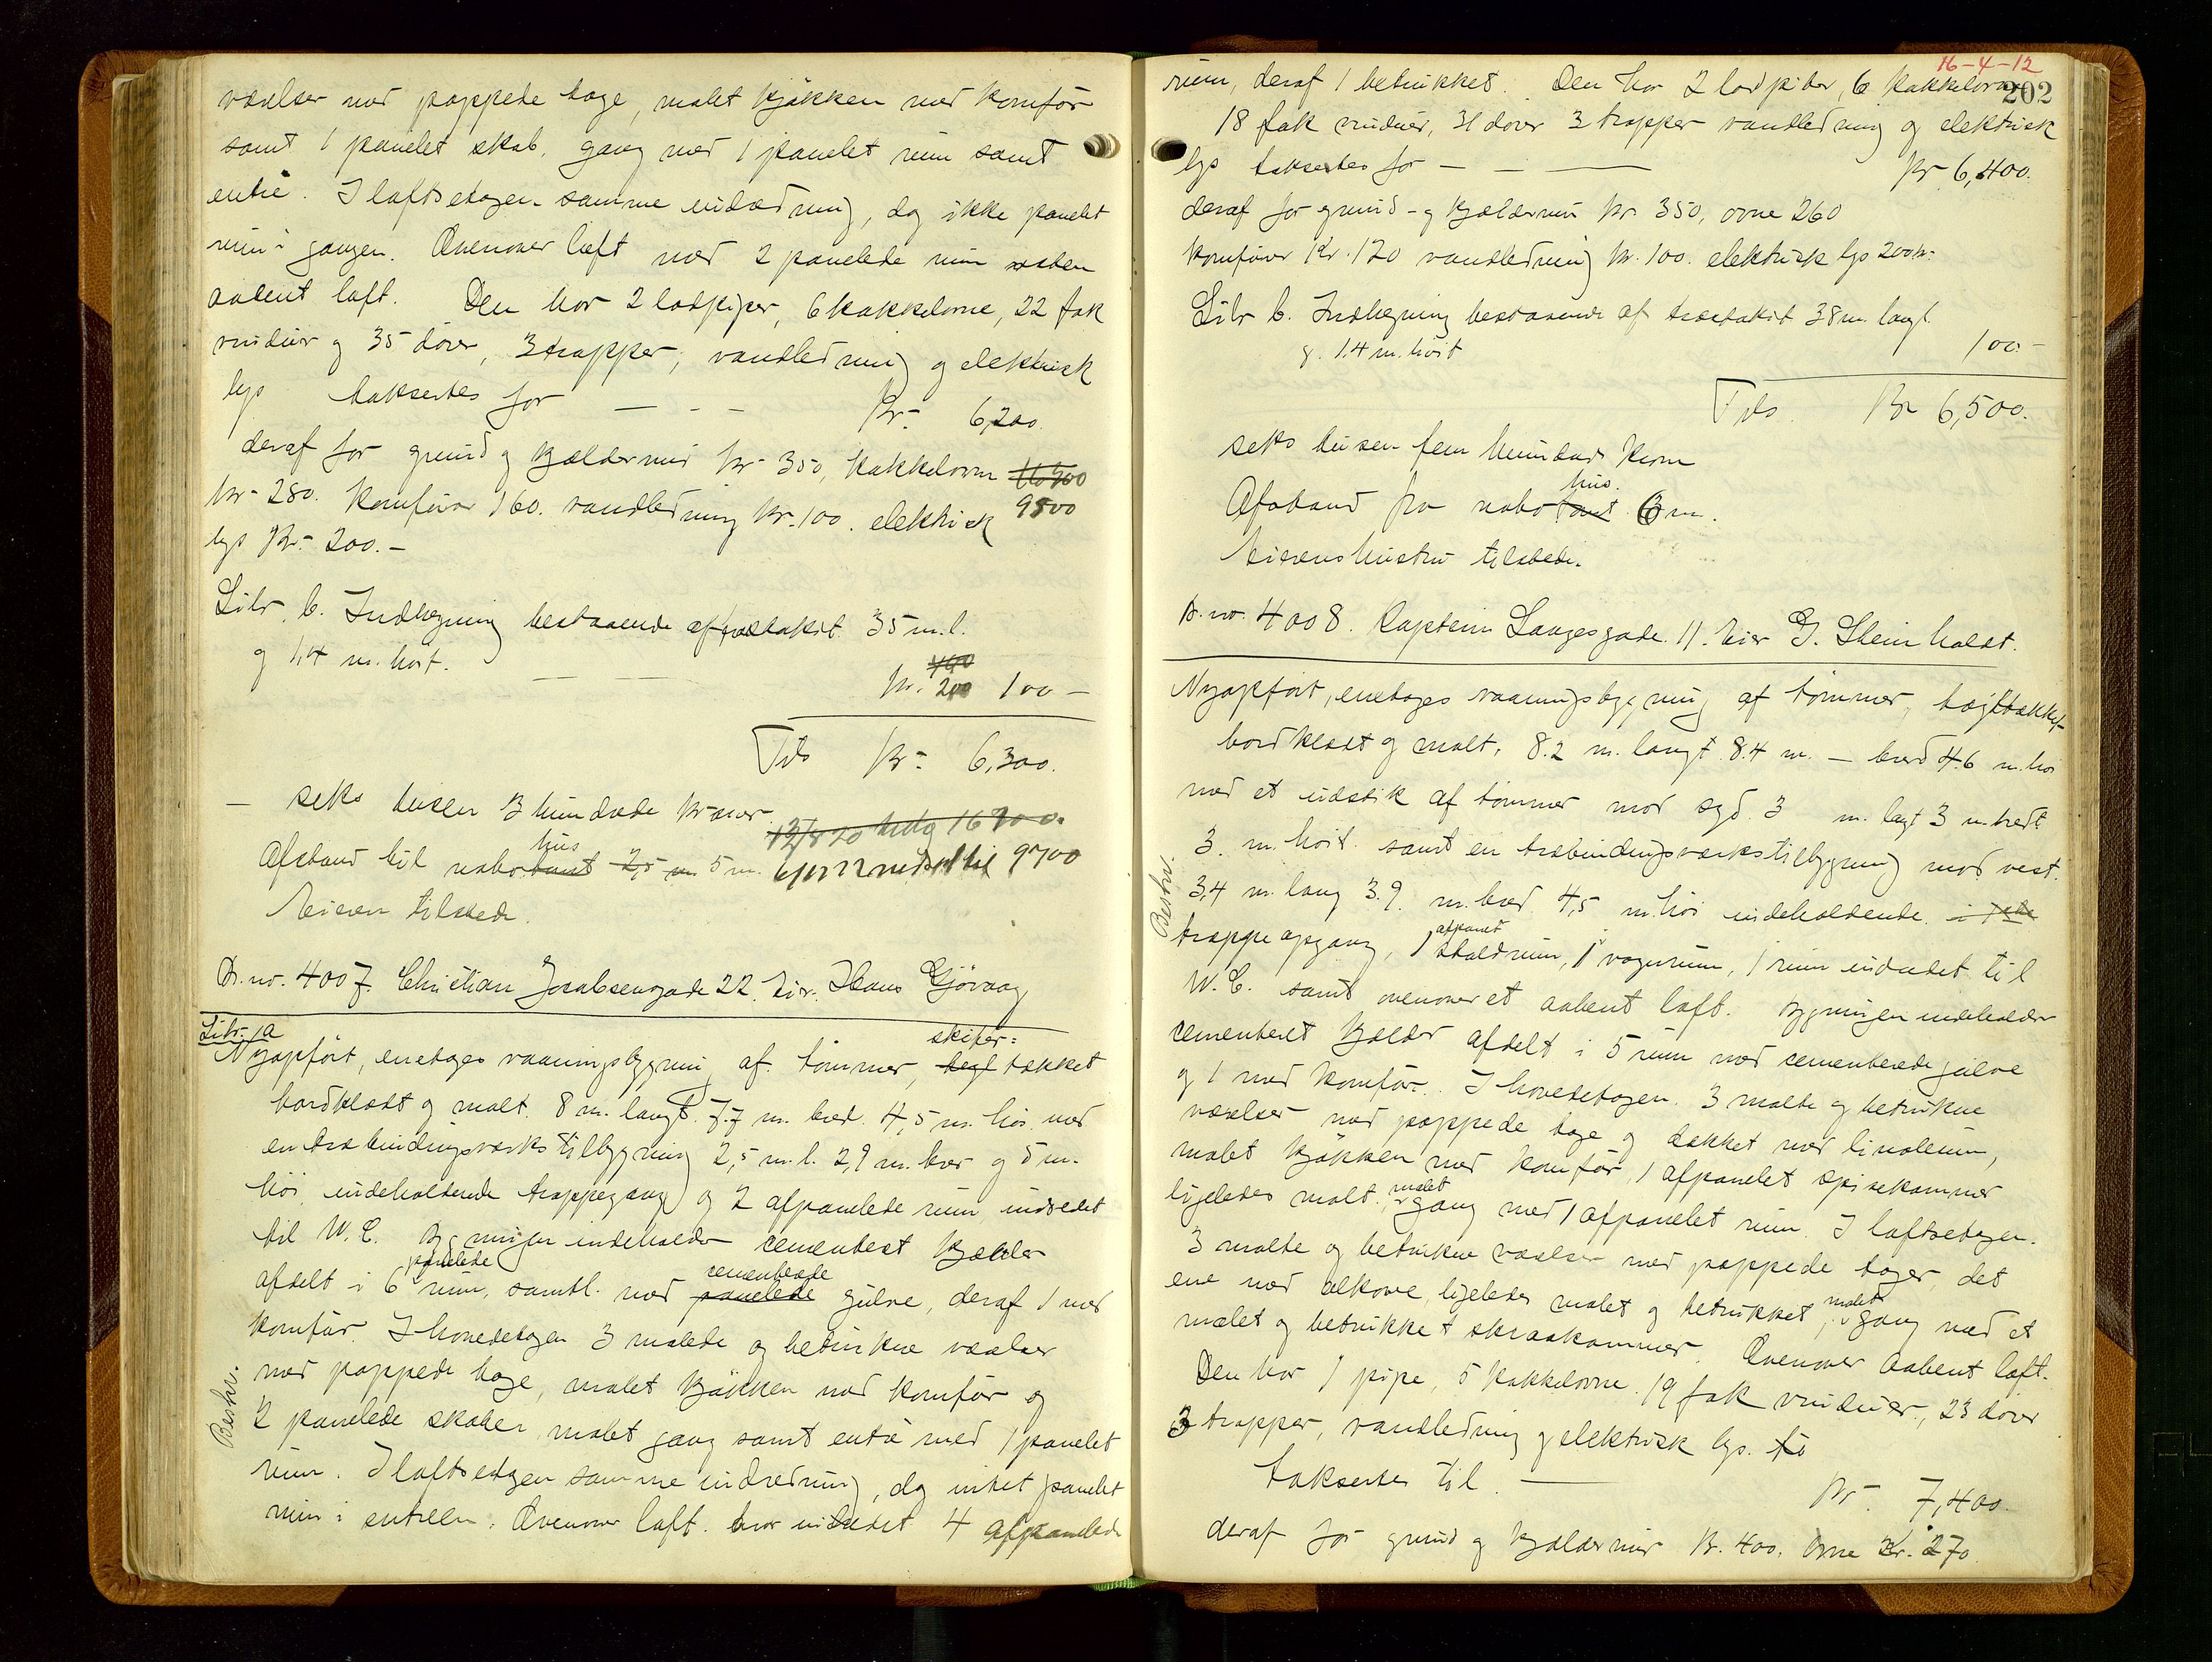 værelser med pappede tage, malet kjøkken med komfør
samt 1 panelet skab, gang med 1 panelet rum samt
entré. I loftsetagen samme indredning, dog ikke panelet
rum i gangen. Ovenover loft med 2 panelede rum
aabent loft. Den har 2 lodpiper, 6 kakkelovne, 22 fak
vinduer og 35 dører, 3 trapper, vandledning og elektrisk
lys takseres for — - - Kr. 6,200.
deraf for grund og kjældermur Kr. 350, kakkelovne
kr. 280. komfører 160. vandledning kr. 100. elektrisk 9500
lys Kr. 200.-
Litr. b. Indhegning bestaaende af træstakit 35 m. l.
og 1,4 m. høit. — — 400
kr. 200 100 -
Tils Kr. 6,300.
— seks tusen 3 hundrede kroner.
12/8 20 16700.
hus
Afstand til nabotomt 2,5 m 5 m. 6/12 22 nedsat til 9700
Eieren tilstede.
Br. no. 4007. Christian Jacobsensgade 22. Eier. Hans Gjøvaag
Litr. a
skifer=
Nyopført, enetages vaaningsbygning af tømmer, tegl tækket
bordklædt og malt. 8 m. langt 7.7 m. bred. 4,5 m. høi med
en træbindingsværks tilbygning 2,5 m. l. 2,9 m. bred og 5 m.
høi, indeholdende trappegang og 2 afpanelede rum, indredet
til W. C. Bygningen indeholder cementert kjælder
panelede cementerede
afdelt i 6 rum, samtl. med panelede gulve, deraf 1 med
komfør. I hovedetagen 3 malede og betrukne værelser
Beskr.
med pappede tage, malet kjøkken med komfør og
2 panelede skaber, malet gang samt entré med 1 panelet
rum. I loftsetagen samme indredning, dog intet panelet
rum i entréen. Ovenover loft. hvor indredet 4 afpanelede
16-4-12
202
rum, deraf 1 betrukket. Den har 2 lodpiber, 6 kakkelovne
18 fak vinduer, 31 dører 3 trapper vandledning og elektrisk
lys takseres for — — — Kr 6,400.
deraf for grund- og kjældermur kr. 350, ovne 260
komfører Kr. 120 vandledning kr. 100. elektrisk lys 200 kr.
Litr b. Indhegning bestaaende af træstakit 38 m. langt
og 1.4 m. høit 100.-
Tils. Kr 6,500.
seks tusen fem hundrede kroner
hus.
Afstand fra nabotomt 6 m.
Eierens hustru tilstede.
Br. no. 4008. Captein Langesgade. 11. Eier G. Steinholdt.
Nyopført, enetages vaaningsbygning af tømmer, tegltækket
bordklædt og malt. 8.2 m. langt 8.4 m. — bred 4.6 m. høi
med et udstik af tømmer mod syd. 3 m. lagt 3 m. bredt
3. m. høit. samt en træbindingsværkstilbygning mod vest.
Beskr.
3,4 m. lang 3.9. m. bred 4,5 m. høi indeholdende i 1ste
afpanet
trappeopgang, 1 staldrum, 1 vognrum, 1 rum indredet til
W. C. samt ovenover et aabent loft. Bygningen indeholder
cementert kjælder afdelt i 5 rum med cementerede gulve
og 1 med komfør. I hovedetagen 3 malte og betrukne
værelser med pappede tage og dækket med linoleum,
malet kjøkken med komfør, 1 afpanelet spisekammer
malet
ligeledes malt. gang med 1 afpanelet rum. I loftsetagen.
3 malte og betrukne værelser med pappede tager, det
ene med alkove, ligeledes malet og betrukket, malet gang med et
malet og betrukket skraakammer. Ovenover aabent loft.
Den har 1 pipe, 5 kakkelovne. 19 fak vinduer, 23 dører
3 trapper, vandledning og elektrisk lys.
takseres til. — Kr. 7,400.
deraf for grund og kjældermur Kr. 400, Ovne Kr. 270.